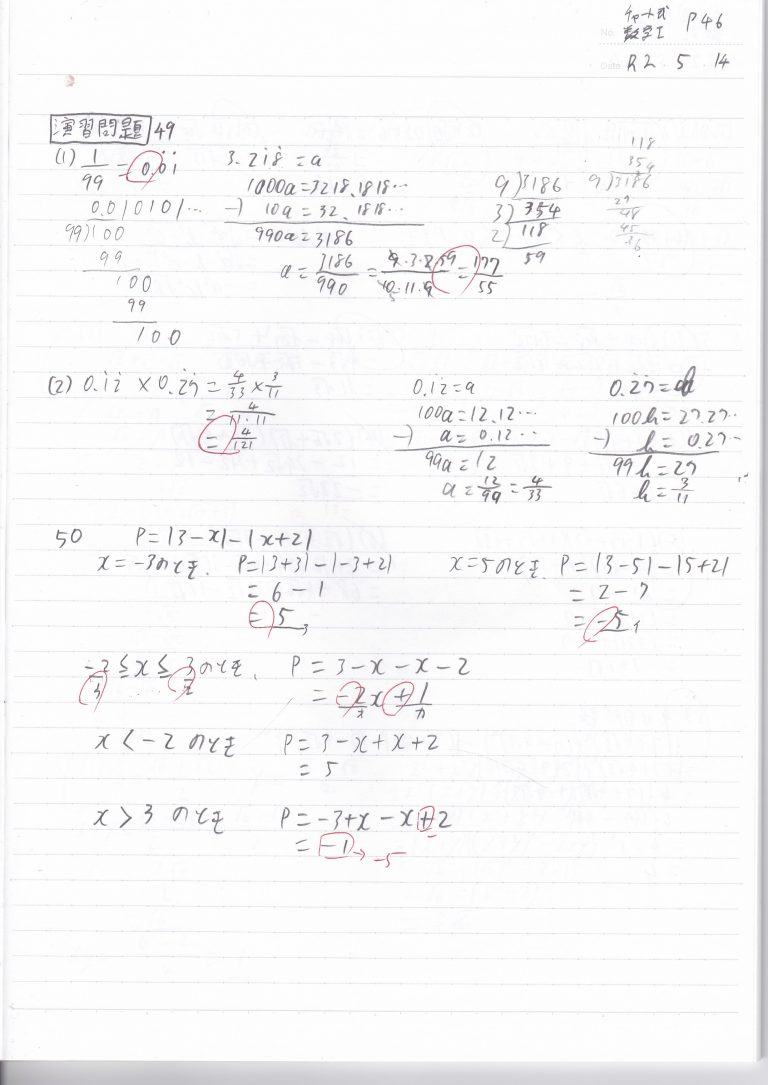 チャート式
数学I P46
No.
Date R2 . 5 . 14
演習問題 49
(1) 1/99 = 0.0̇1̇
3.2̇1̇8̇ = a
1000a = 3218.1818…
−) 10a = 32.1818…
990a = 3186
a = 3186/990 = 9・3・2・59/10・11・9 = 177/55
0.010101…
99)100
99
100
99
100
9)3186
3)354
2)118
59
118
354
9)3186
27
48
45
36
(2) 0.1̇2̇ × 0.2̇7̇ = 4/33 × 3/11
= 4/11・11
= 4/121
0.1̇2̇ = a
100a = 12.12…
−) a = 0.12…
99a = 12
a = 12/99 = 4/33
0.2̇7̇ = b
100b = 27.27…
−) b = 0.27…
99b = 27
b = 3/11
50 P = |3−x|−|x+2|
x = −3のとき. P = |3+3|−|−3+2|
= 6−1
= 5
x = 5のとき. P = |3−5|−|5+2|
= 2−7
= −5
−2 ≦ x ≦ 3のとき. P = 3−x−x−2
= −2x+1
x < −2 のとき P = 3−x+x+2
= 5
x > 3 のとき P = −3+x−x+2
= −1 → −5